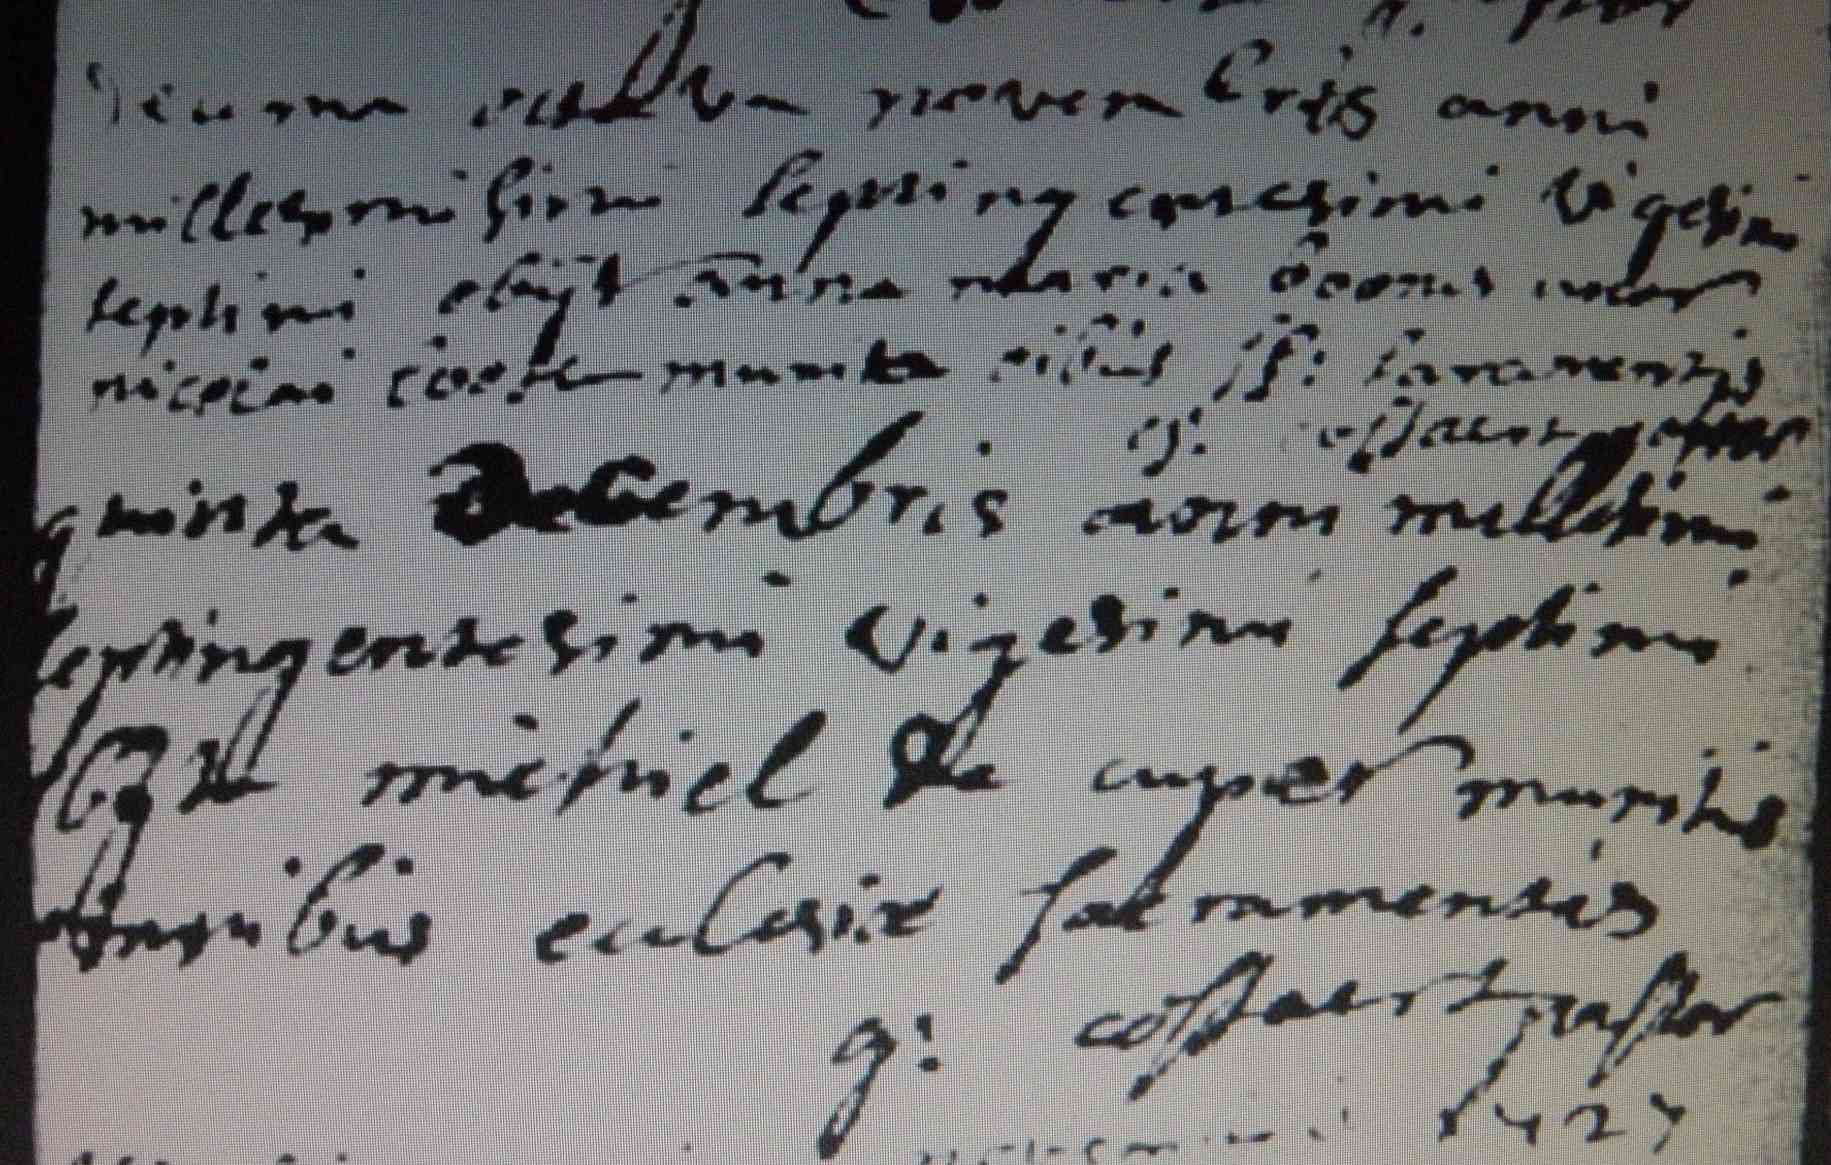 decima octava novembris anni
millesimi septingentesimi vigesimi
septimi obijt anna maria uxor
nicolai munita oibus ss: sacramentis
g: costaert pastor
quinta decembris anni millesimi
septingentesimi vigesimi septimi
obijt michiel de cuyper munitus
omnibus eclesiæ sacramentis
g: costaert pastor
1727